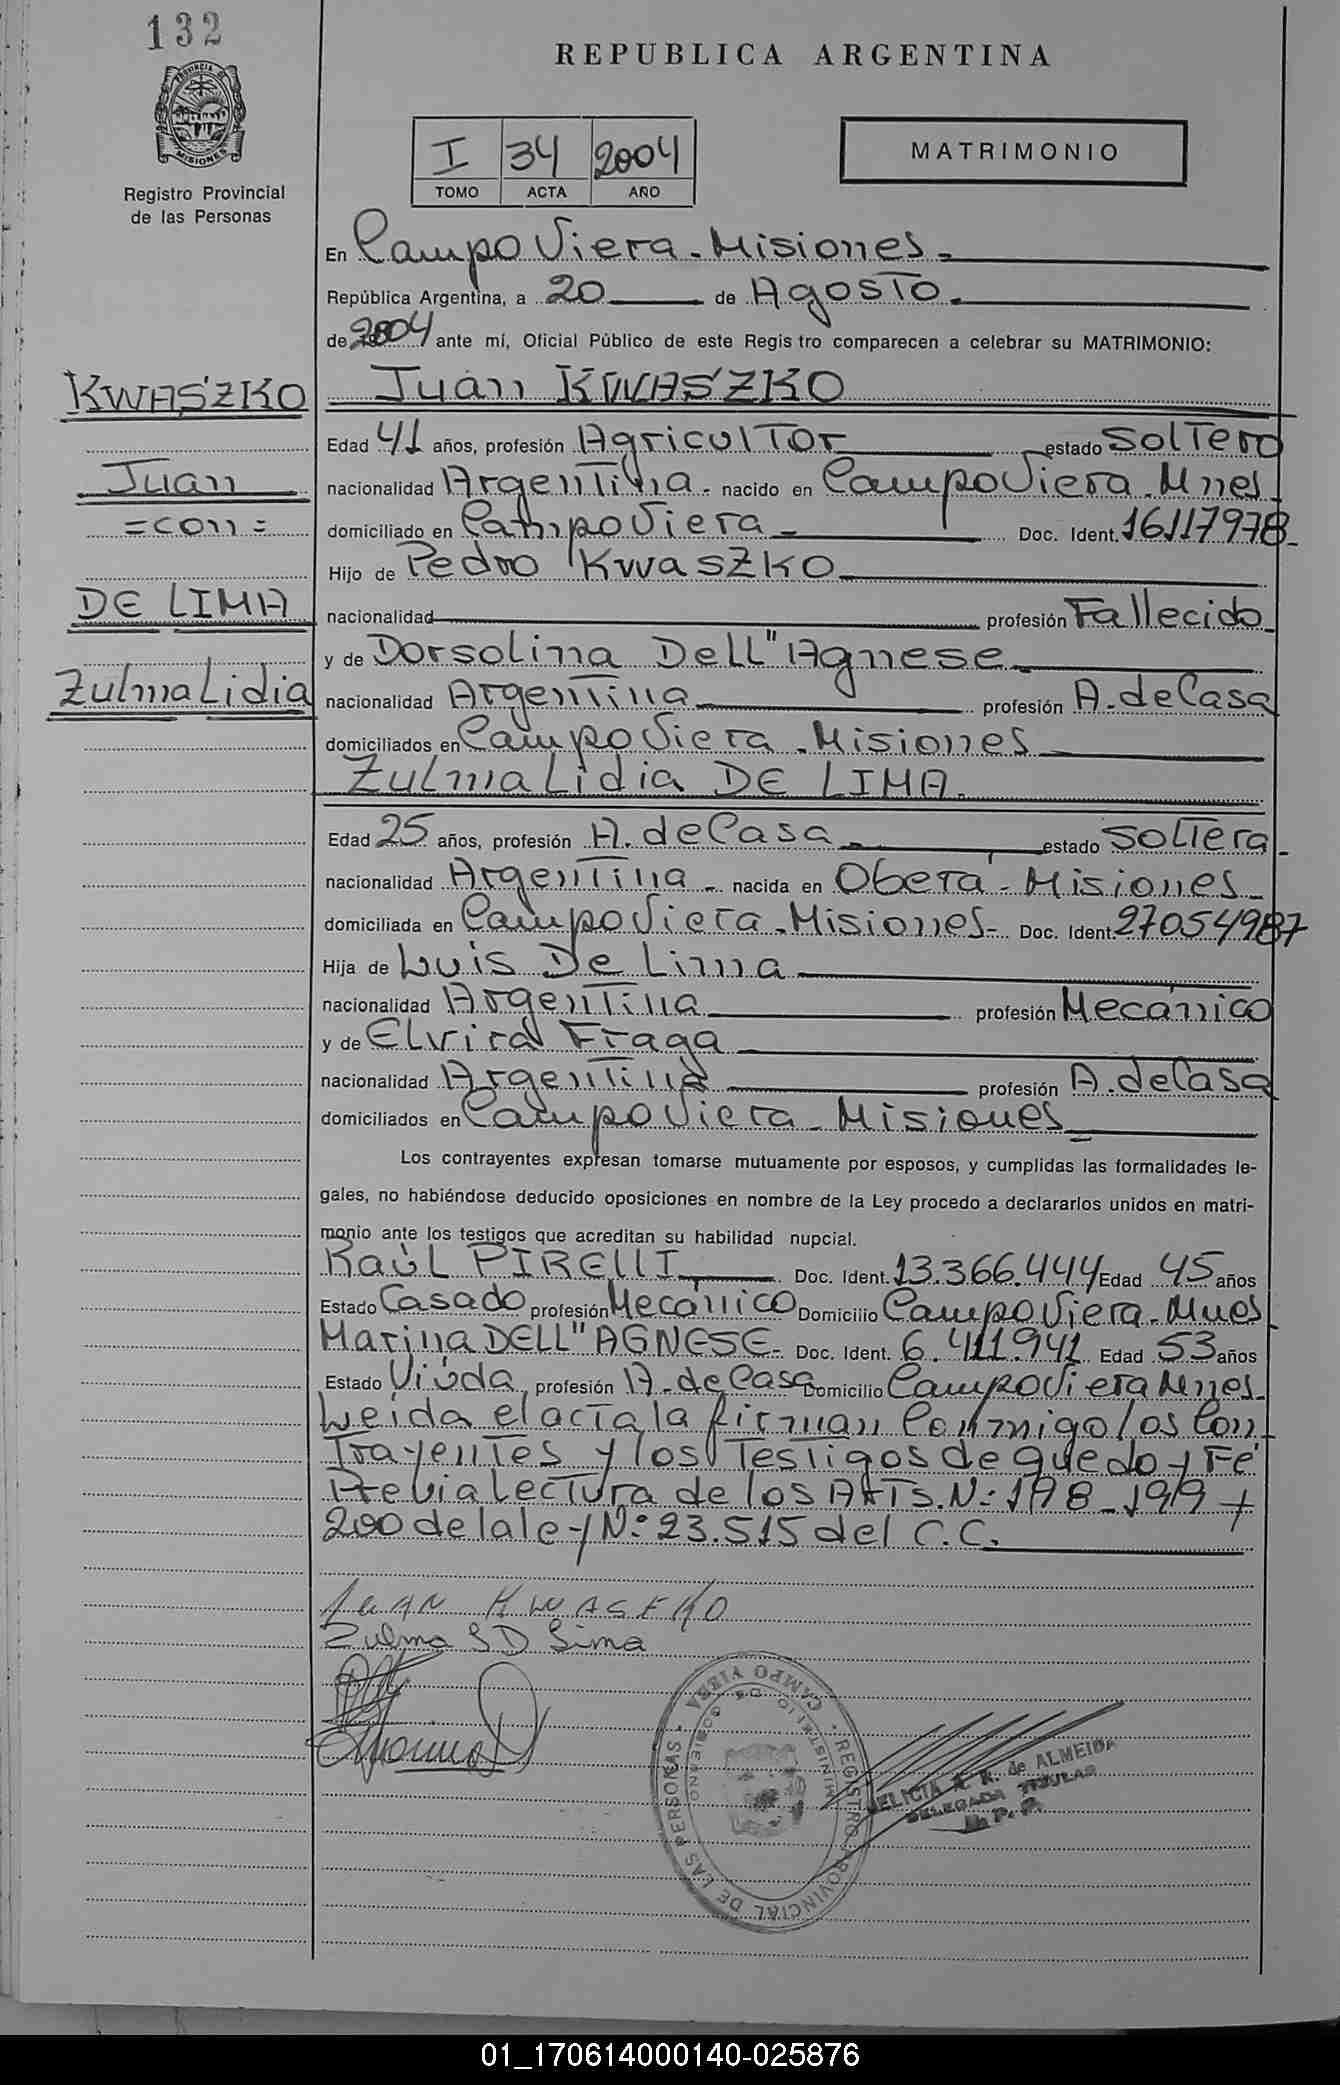 132
REPUBLICA ARGENTINA
PROVINCIA DE
MISIONES
Registro Provincial
de las Personas
I 34 2004
TOMO ACTA AÑO
MATRIMONIO
En Campo Viera - Misiones -
República Argentina, a 20 de Agosto.
de 2004 ante mí, Oficial Público de este Regis tro comparecen a celebrar su MATRIMONIO:
KWASZKO
Juan
= con =
DE LIMA
Zulma Lidia
Juan KWASZKO
Edad 41 años, profesión Agricultor estado Soltero
nacionalidad Argentina - nacido en Campo Viera - Mnes.
domiciliado en Campo Viera - Doc. Ident. 16117978 -
Hijo de Pedro Kwaszko
nacionalidad profesión Fallecido
y de Dorsolina Dell" Agnese
nacionalidad Argentina profesión A. de Casa
domiciliados en Campo Viera - Misiones
Zulma Lidia DE LIMA.
Edad 25 años, profesión A. de Casa estado Soltera -
nacionalidad Argentina - nacida en Oberá - Misiones
domiciliada en Campo Viera - Misiones - Doc. Ident. 27054987
Hija de Luis De Lima
nacionalidad Argentina profesión Mecánico
y de Elvira Fraga
nacionalidad Argentina profesión A. de Casa
domiciliados en Campo Viera - Misiones
Los contrayentes expresan tomarse mutuamente por esposos, y cumplidas las formalidades le-
gales, no habiéndose deducido oposiciones en nombre de la Ley procedo a declararlos unidos en matri-
monio ante los testigos que acreditan su habilidad nupcial.
Raúl PIRELLI Doc. Ident. 13.366.444 Edad 45 años
Estado Casado profesión Mecánico Domicilio Campo Viera - Mnes
Marina DELL" AGNESE - Doc. Ident. 6.411.941 Edad 53 años
Estado Viúda profesión A. de Casa Domicilio Campo Viera Mnes.
Leída el acta la firman Conmigo los Con
trayentes y los Testigos de que doy Fé
Previa lectura de los ARTS. N: 198 - 199 y
200 de la ley N: 23.515 del C.C.
Juan KWASZKO
Zulma L D Lima
REGISTRO PROVINCIAL DE LAS PERSONAS - CAMPO VIERA
MINISTERIO DE GOBIERNO
DELICIA A. R. de ALMEIDA
DELEGADA TITULAR
R. P. P.
01_170614000140-025876